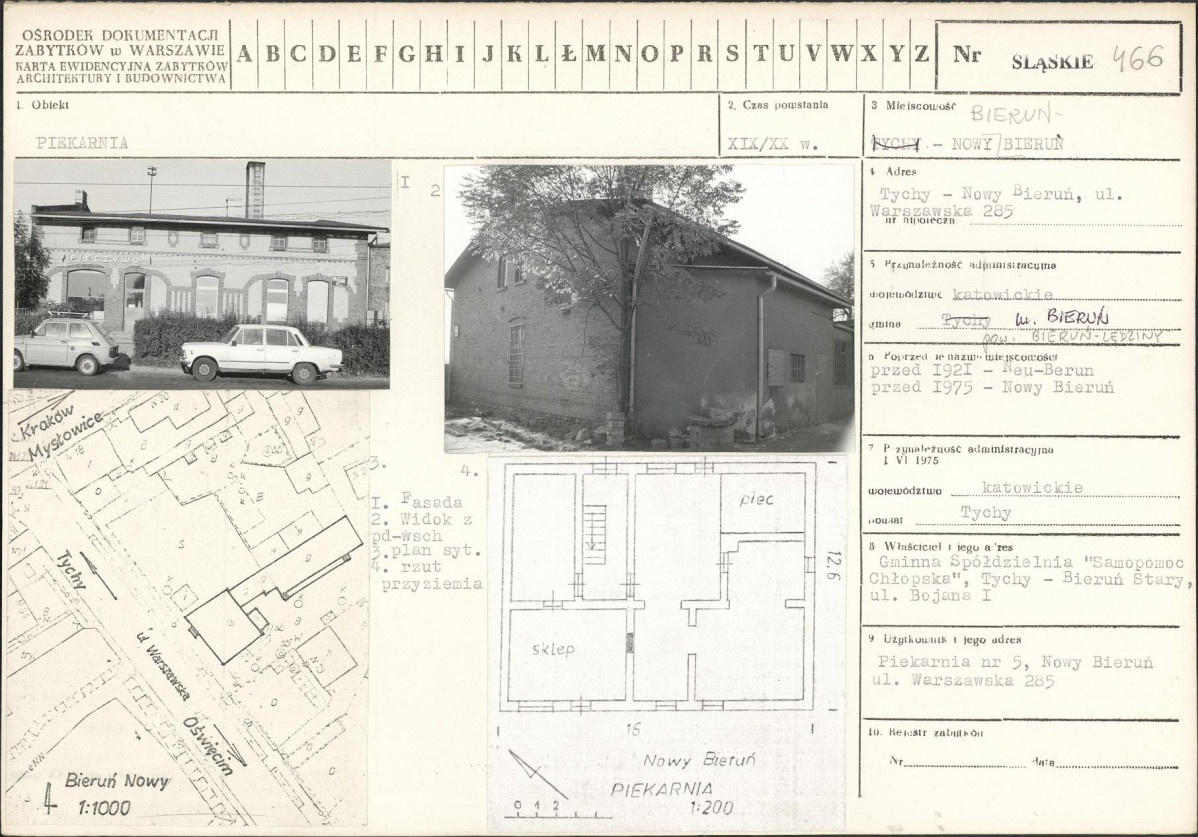 OŚRODEK DOKUMENTACJI
ZABYTKÓW w WARSZAWIE
KARTA EWIDENCYJNA ZABYTKÓW
ARCHITEKTURY I BUDOWNICTWA
A B C D E F G H I J K L Ł M N O P R S T U V W X Y Z
Nr ŚLĄSKIE 466
1. Obiekt
PIEKARNIA
2. Czas powstania
XIX/XX w.
3 Miejscowość
BIERUŃ-
TYCHY - NOWY BIERUŃ
4 Adres
Tychy - Nowy Bieruń, ul.
Warszawska 285
nr hipoteczn
5 Przynależność administracyjna
województwo katowickie
gmina Tychy m. BIERUŃ
pow. BIERUŃ-LĘDZINY
6 Poprzednie nazwy miejscowości
przed I92I - Neu-Berun
przed I975 - Nowy Bieruń
7 Przynależność administracyjna
I VI 1975
województwo katowickie
powiat Tychy
8 Właściciel i jego adres
Gminna Spółdzielnia "Samopomoc
Chłopska", Tychy - Bieruń Stary,
ul. Bojana I
9 Użytkownik i jego adres
Piekarnia nr 5, Nowy Bieruń
ul. Warszawska 285
10. Rejestr zabytków
Nr data
I
2
PIECZYWO
3.
4.
I. Fasada
2. Widok z
pd-wsch
3.plan syt.
4. rzut
przyziemia
Kraków
Mysłowice
Tychy
ul Warszawska
Oświęcim
Bieruń Nowy
1:1000
piec
sklep
12,6
16
Nowy Bieruń
PIEKARNIA
1:200
0 1 2